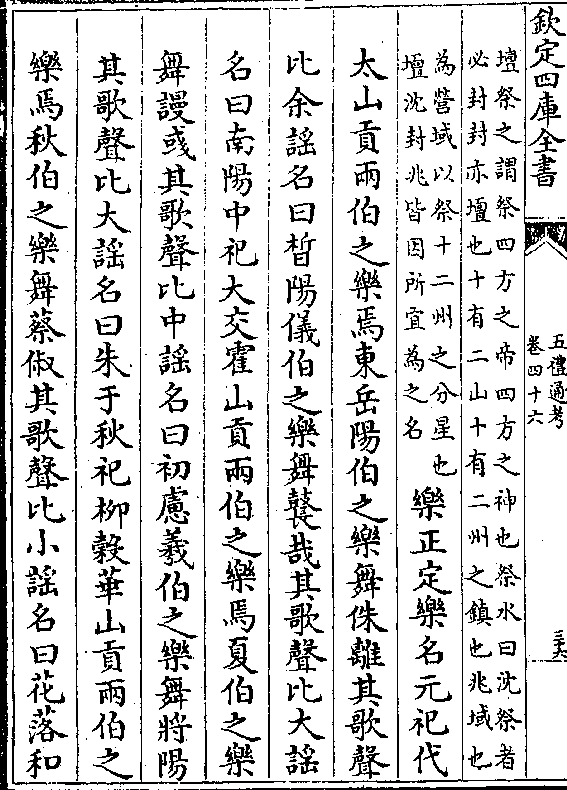 欽定四庫全書
五禮通考
卷四十六
三六
壇祭之謂祭四方之帝四方之神也祭水曰沈祭者
必封封亦壇也十有二山十有二州之鎮也兆域也
為營域以祭十二州之分星也
壇沈封兆皆因所宜為之名
樂正定樂名元祀代
太山貢兩伯之樂焉東岳陽伯之樂舞侏離其歌聲
比余謡名曰晳陽儀伯之樂舞鼚哉其歌聲比大謡
名曰南陽中祀大交霍山貢兩伯之樂焉夏伯之樂
舞謾彧其歌聲比中謡名曰初慮羲伯之樂舞將陽
其歌聲比大謡名曰朱于秋祀栁穀華山貢兩伯之
樂焉秋伯之樂舞蔡俶其歌聲比小謡名曰花落和